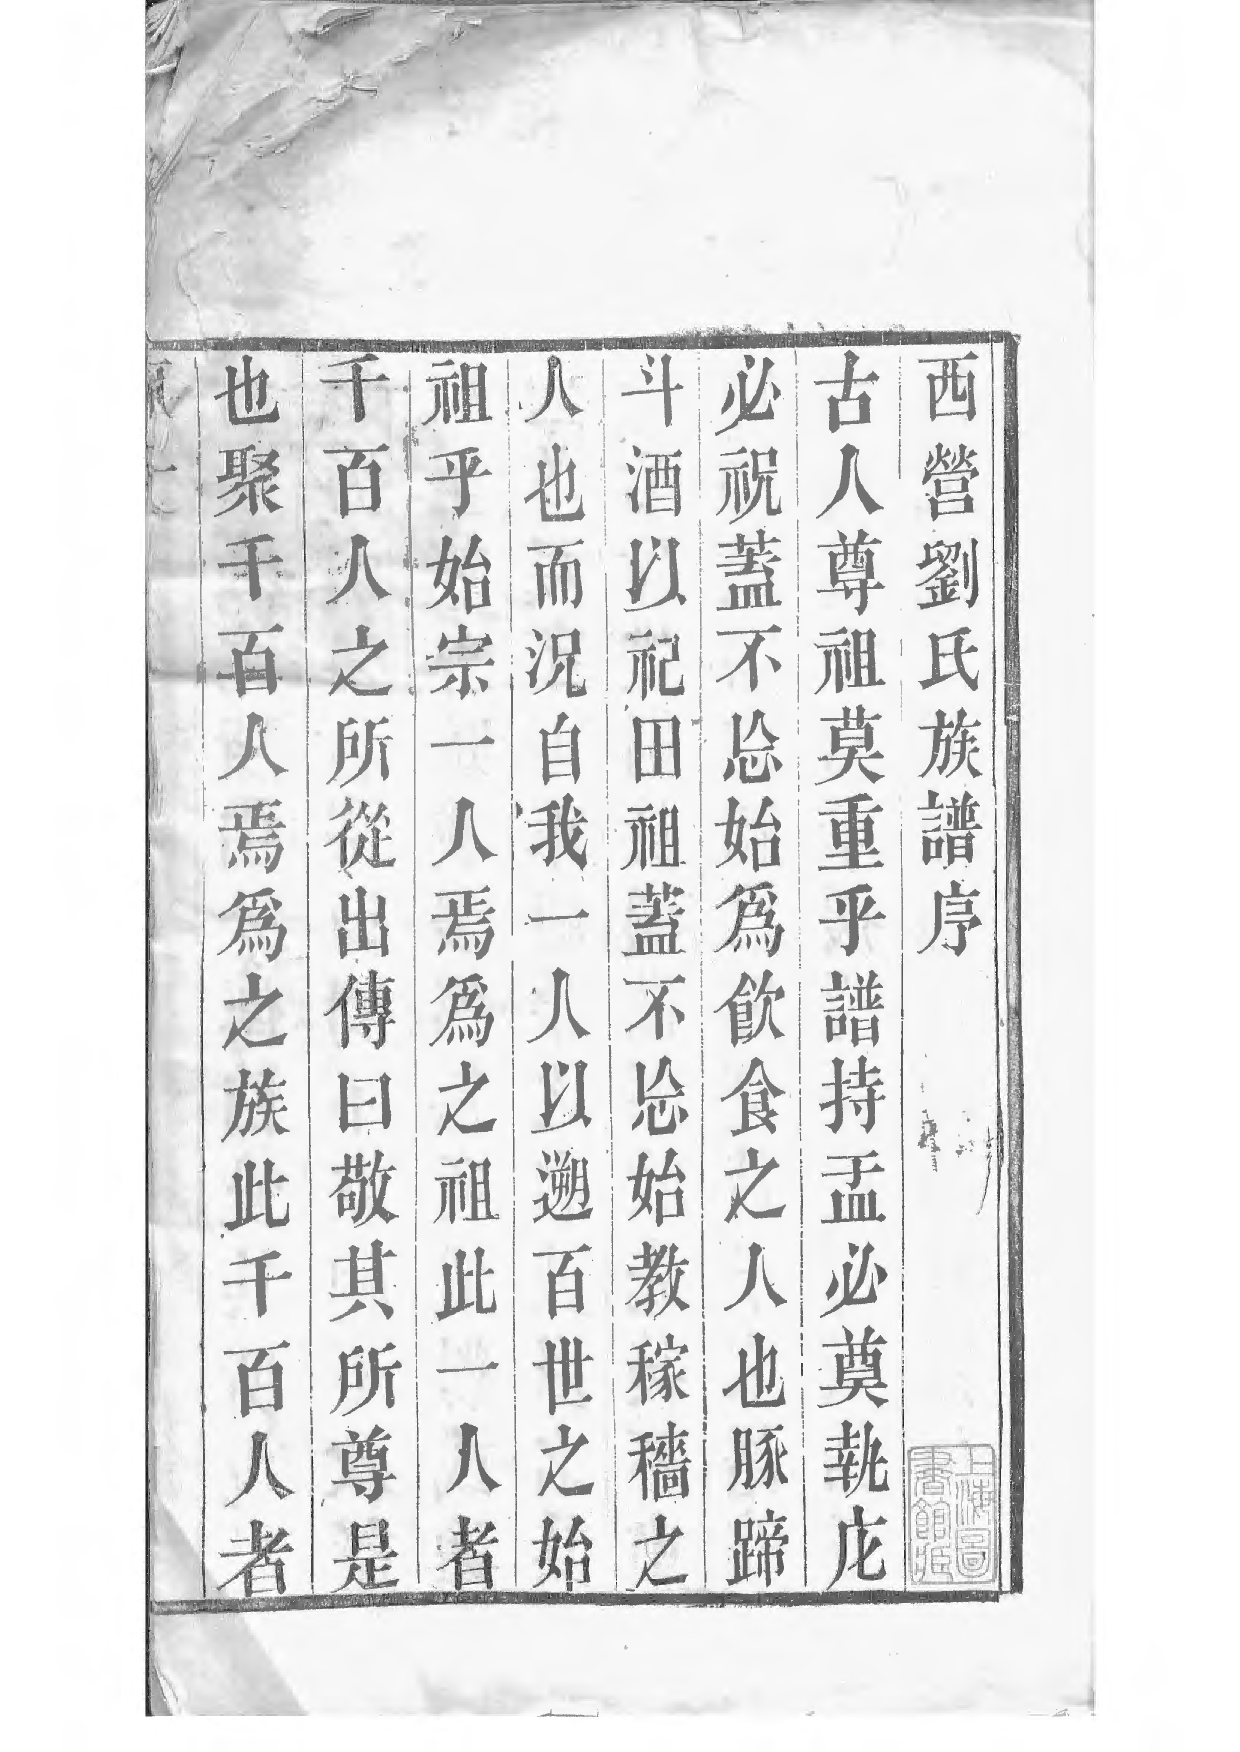 西營劉氏族譜序
古人尊祖莫重乎譜持盂必奠執庀
必祝蓋不忘始爲飮食之人也豚蹄
斗酒以祀田祖蓋不忘始教稼穡之
人也而況自我一人以遡百世之始
祖乎始宗一人焉爲之祖此一人者
千百人之所從出傳曰敬其所尊是
也聚千百人焉爲之族此千百人者
上海圖書館藏